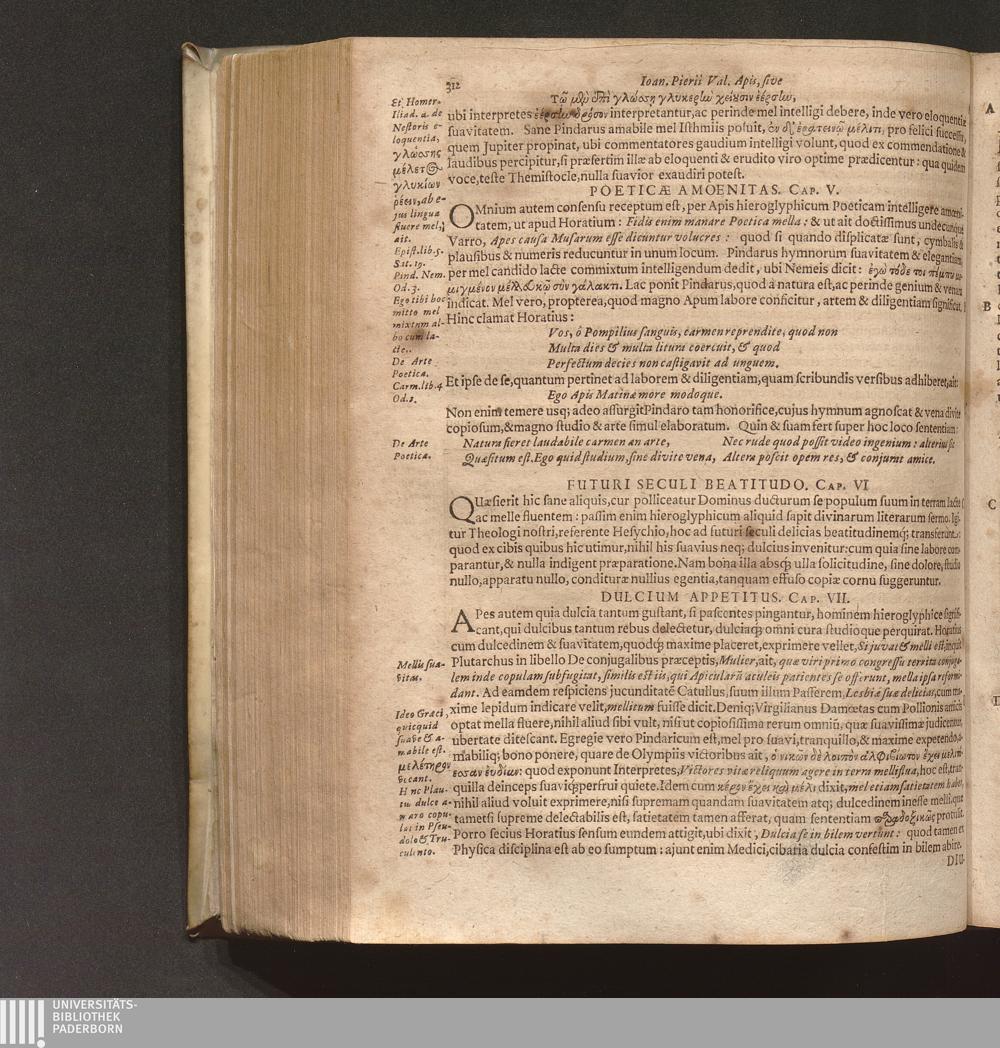 312
Ioan. Pierii Val. Apis, sive
Τῷ μὲν ἐπὶ γλώσσῃ γλυκερὴν χείουσιν ἐέρσην,
ubi interpretes ἐέρσην δρόσον interpretantur, ac perinde mel intelligi debere, inde vero eloquentiæ
suavitatem. Sane Pindarus amabile mel Isthmiis posuit, ἐν δ' ἐρατεινῷ μέλιτι, pro felici successu,
quem Jupiter propinat, ubi commentatores gaudium intelligi volunt, quod ex commendatione &
laudibus percipitur, si præsertim illæ ab eloquenti & erudito viro optime prædicentur: qua quidem
voce, teste Themistocle, nulla suavior exaudiri potest.
Et Homer.
Iliad. a. de
Nestoris e-
loquentia,
γλώσσης
μέλιτος
γλυκίων
ῥέεν, ab e-
jus lingua
fluere mel,
ait.
POETICÆ AMOENITAS. CAP. V.
OMnium autem consensu receptum est, per Apis hieroglyphicum Poëticam intelligere amœni-
tatem, ut apud Horatium: Fidis enim manare Poetica mella: & ut ait doctissimus undecunque
Varro, Apes causa Musarum esse dicuntur volucres: quod si quando displicatæ sunt, cymbalis &
plausibus & numeris reducuntur in unum locum. Pindarus hymnorum suavitatem & elegantiam
per mel candido lacte commixtum intelligendum dedit, ubi Nemeis dicit: ἐγὼ τόδε τοι πέμπω με-
μιγμένον μέλι λευκῷ σὺν γάλακτι. Lac ponit Pindarus, quod à natura est, ac perinde genium & venam
indicat. Mel vero, propterea, quod magno Apum labore conficitur, artem & diligentiam significat,
Hinc clamat Horatius:
Epist. lib. 5.
Sat. 19.
Pind. Nem.
Od. 3.
Ego tibi hoc
mitto mel
mixtum al-
bo cum la-
cte..
Vos, ô Pompilius sanguis, carmen reprendite, quod non
Multa dies & multa litura coercuit, & quod
Perfectum decies non castigavit ad unguem.
De Arte
Poetica.
Et ipse de se, quantum pertinet ad laborem & diligentiam, quam scribundis versibus adhiberet, ait:
Carm. lib. 4
Od. 2.
Ego Apis Matinæ more modoque.
Non enim temere usq; adeo assurgit Pindaro tam honorifice, cujus hymnum agnoscat & vena divite
copiosum, & magno studio & arte simul elaboratum. Quin & suam fert super hoc loco sententiam:
De Arte
Poetica.
Natura fieret laudabile carmen an arte, Nec rude quod possit video ingenium: alterius sic
Quæsitum est. Ego quid studium, sine divite vena, Altera poscit opem res, & conjurat amice.
FUTURI SECULI BEATITUDO. CAP. VI
QUæsierit hic sane aliquis, cur polliceatur Dominus ducturum se populum suum in terram lacte
ac melle fluentem: passim enim hieroglyphicum aliquid sapit divinarum literarum sermo. Igi-
tur Theologi nostri, referente Hesychio, hoc ad futuri seculi delicias beatitudinemq; transferunt:
quod ex cibis quibus hic utimur, nihil his suavius neq; dulcius invenitur: cum quia sine labore com-
parantur, & nulla indigent præparatione. Nam bona illa absq; ulla solicitudine, sine dolore, studio
nullo, apparatu nullo, condituræ nullius egentia, tanquam effuso copiæ cornu suggeruntur.
DULCIUM APPETITUS. CAP. VII.
APes autem quia dulcia tantum gustant, si pascentes pingantur, hominem hieroglyphice signifi-
cant, qui dulcibus tantum rebus delectetur, dulciaq; omni cura studioque perquirat. Horatius
cum dulcedinem & suavitatem, quodq; maxime placeret, exprimere vellet, Si juvat & melli est, inquit
Plutarchus in libello De conjugalibus præceptis, Mulier, ait, quæ viri primo congressu territa conjuga-
lem inde copulam subfugitat, similis est iis, qui Apicularũ aculeis patientes se offerunt, mella ipsa reformi-
dant. Ad eamdem respiciens jucunditatẽ Catullus, suum illum Passerem, Lesbiæ suæ delicias, cum ma-
xime lepidum indicare velit, mellitum fuisse dicit. Deniq; Virgilianus Damœtas cum Pollionis amicis
optat mella fluere, nihil aliud sibi vult, nisi ut copiosissima rerum omniũ, quæ suavissimæ judicentur,
ubertate ditescant. Egregie vero Pindaricum est, mel pro suavi, tranquillo, & maxime expetendo, a-
mabiliq; bono ponere, quare de Olympiis victoribus ait, ὁ νικῶν δὲ λοιπὸν ἀμφὶ βίοτον ἔχει μελιτό-
εσσαν εὐδίαν: quod exponunt Interpretes, Victores vitæ reliquum agere in terra melliflua, hoc est, tran-
quilla deinceps suaviq; perfrui quiete. Idem cum κόρον ἔχει καὶ μέλι dixit, mel etiam satietatem habet,
nihil aliud voluit exprimere, nisi supremam quandam suavitatem atq; dulcedinem inesse melli, quæ
tametsi supreme delectabilis est, satietatem tamen afferat, quam sententiam παραδοξικῶς protulit.
Porro secius Horatius sensum eundem attigit, ubi dixit, Dulcia se in bilem vertunt: quod tamen ex
Physica disciplina est ab eo sumptum: ajunt enim Medici, cibaria dulcia confestim in bilem abire.
Mellis sua-
vitas.
Ideo Græci,
quicquid
suave & a-
mabile est.
μελίτηρον
vocant.
Hinc Plau-
tus dulce a-
maro copu-
lat in Pseu-
dolo & Tru-
culento.
DIU-
A
B
C
D
UNIVERSITÄTS-
BIBLIOTHEK
PADERBORN